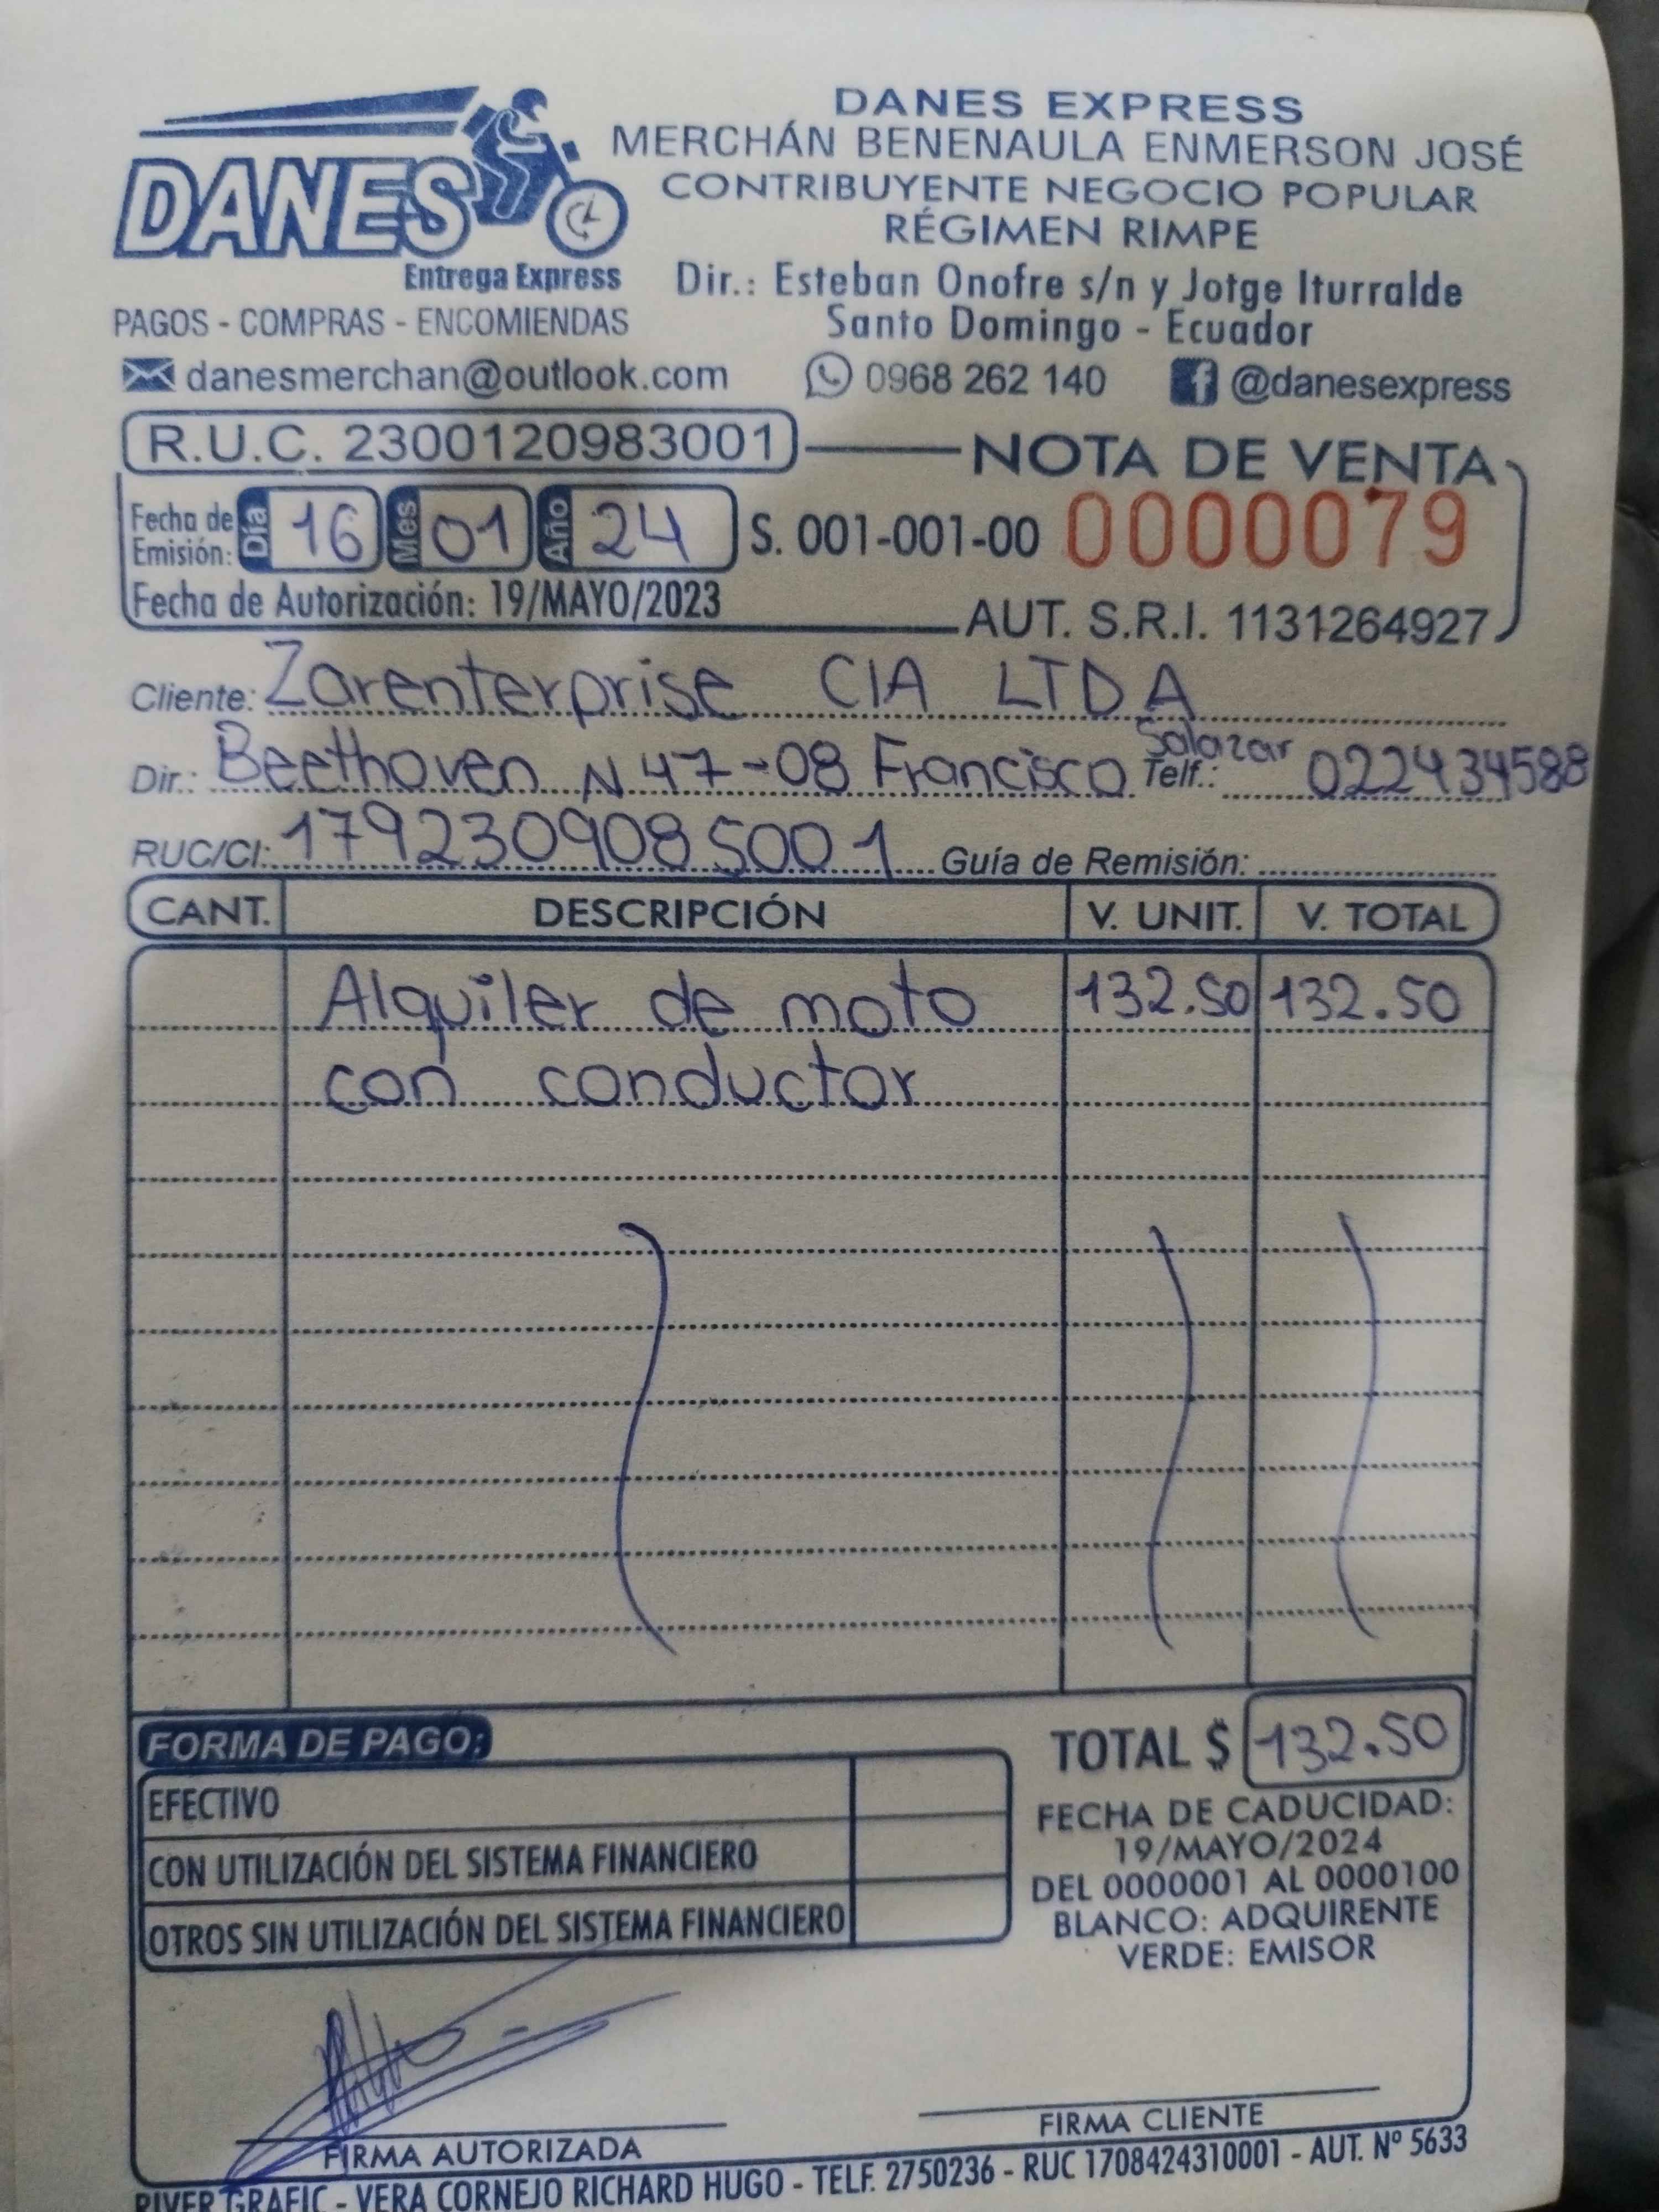 DANES
Entrega Express
PAGOS - COMPRAS - ENCOMIENDAS
DANES EXPRESS
MERCHÁN BENENAULA ENMERSON JOSÉ
CONTRIBUYENTE NEGOCIO POPULAR
RÉGIMEN RIMPE
Dir.: Esteban Onofre s/n y Jotge Iturralde
Santo Domingo - Ecuador
danesmerchan@outlook.com 0968 262 140 @danesexpress
R.U.C. 2300120983001 NOTA DE VENTA
Fecha de Emisión: Día 16 Mes 01 Año 24 S. 001-001-00 0000079
Fecha de Autorización: 19/MAYO/2023 AUT. S.R.I. 1131264927
Cliente: Zarenterprise CIA LTDA
Dir.: Beethoven N47-08 Francisco Salazar Telf.: 022434588
RUC/CI: 1792309085001 Guía de Remisión:
CANT. DESCRIPCIÓN V. UNIT. V. TOTAL
Alquiler de moto 132.50 132.50
con conductor
FORMA DE PAGO: TOTAL $ 132.50
EFECTIVO
CON UTILIZACIÓN DEL SISTEMA FINANCIERO
OTROS SIN UTILIZACIÓN DEL SISTEMA FINANCIERO
FECHA DE CADUCIDAD:
19/MAYO/2024
DEL 0000001 AL 0000100
BLANCO: ADQUIRENTE
VERDE: EMISOR
FIRMA AUTORIZADA FIRMA CLIENTE
RIVER GRAFIC - VERA CORNEJO RICHARD HUGO - TELF. 2750236 - RUC 1708424310001 - AUT. Nº 5633